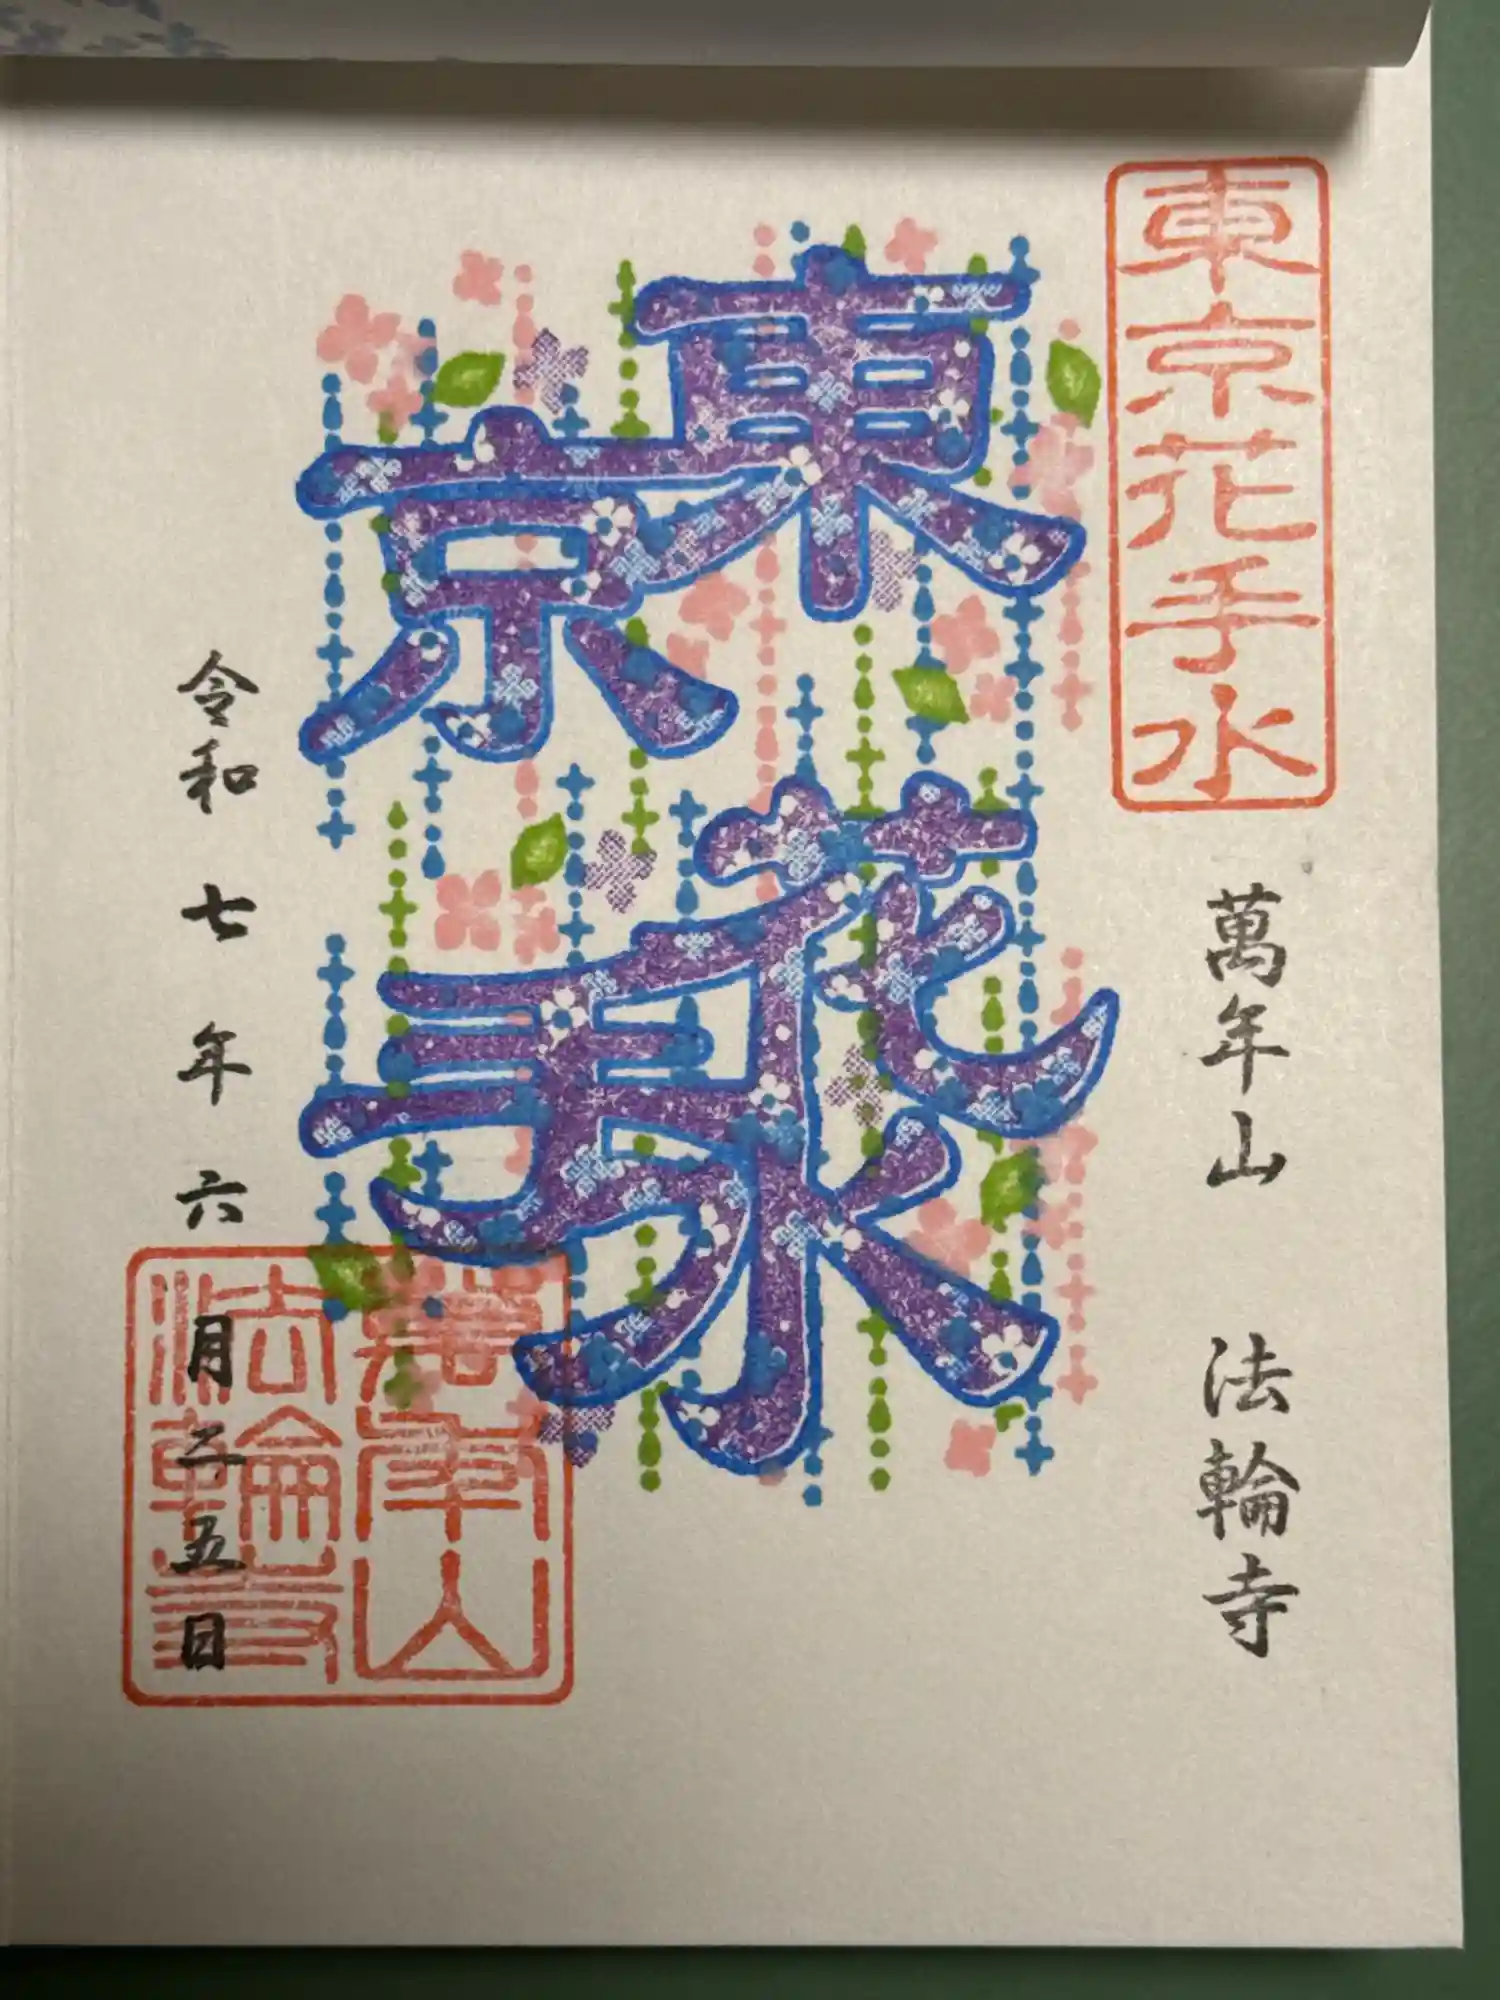 東京花手水
萬年山 法輪寺
東京
花手水
令和七年六月二五日
萬年山
法輪寺